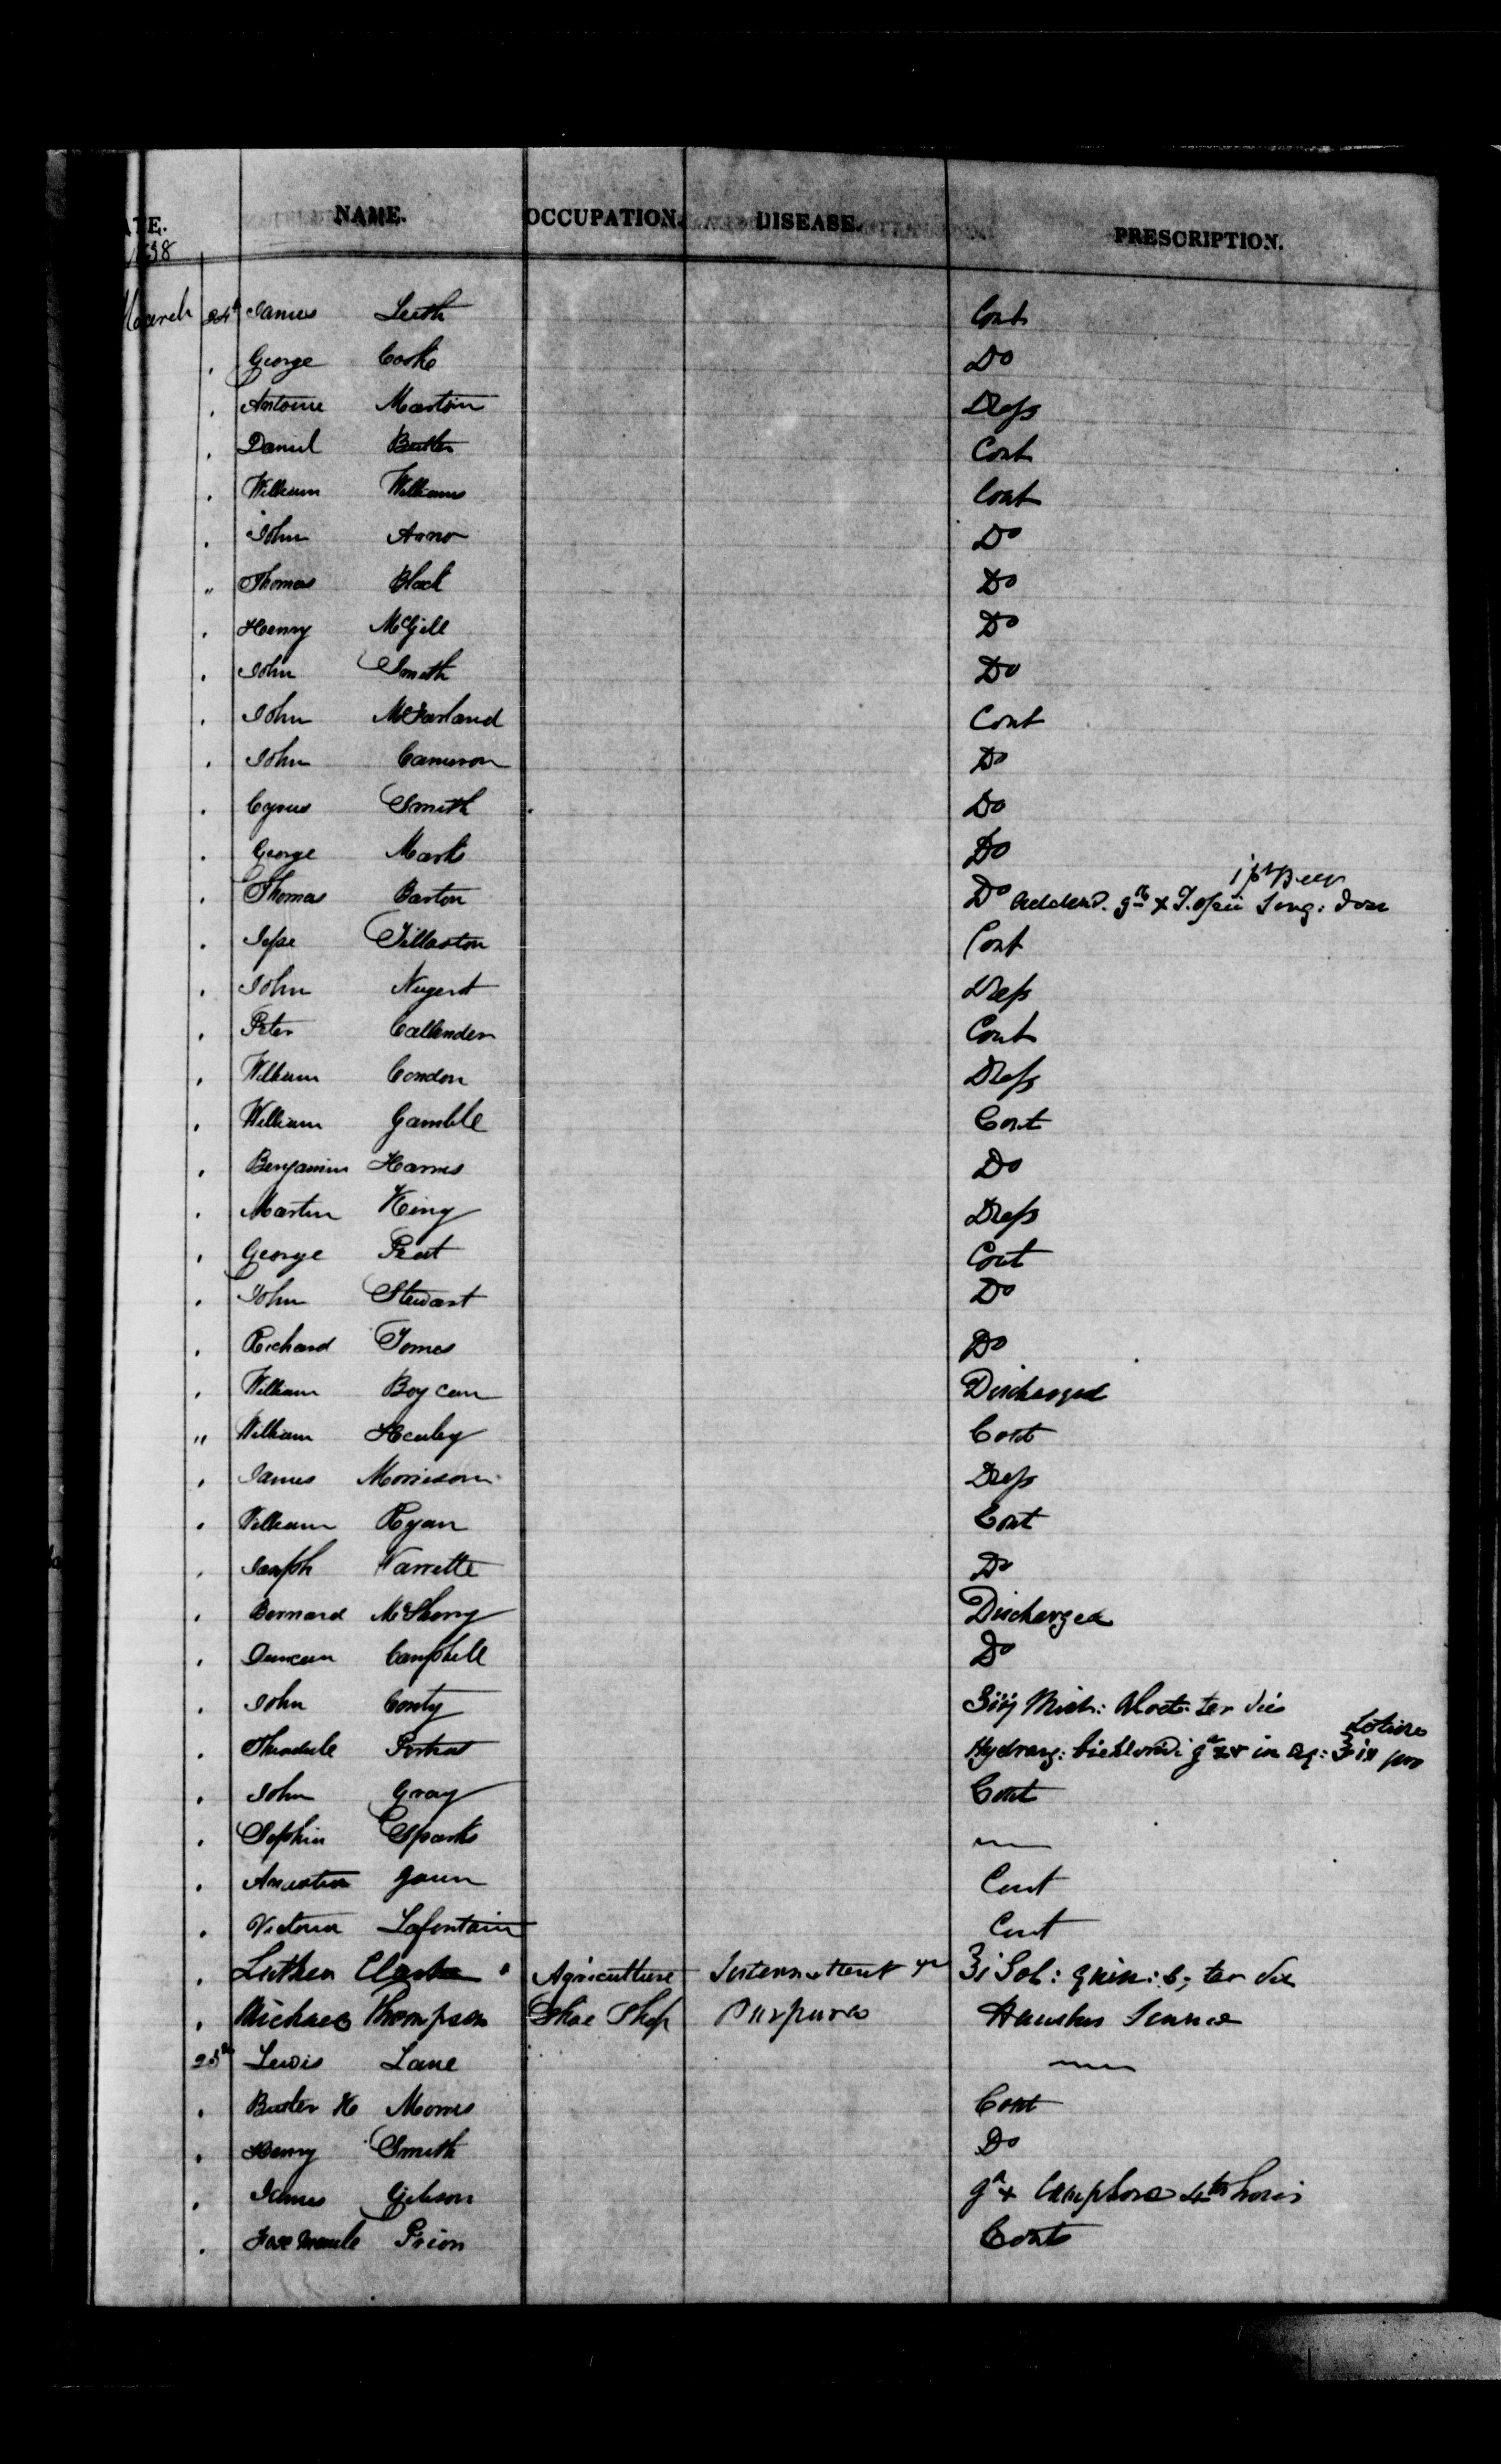 NAME. OCCUPATION. DISEASE. PRESCRIPTION.
March 24th James Leith Cont
George Cooke Do
Antoine Martin Dress
Daniel Butler Cont
William Williams Cont
John Arno Do
Thomas Black Do
Henry McGill Do
John Smith Do
John McFarland Cont
John Cameron Do
Cyrus Smith Do
George Marks Do
Thomas Barton Do
Jesse Tillaston Cont
John Nugent Dress
Peter Callender Cont
William Condon Dress
William Gamble Cont
Benjamin Harris Do
Martin King Dress
George Peat Cont
John Stewart Do
Richard Jones Do
William Boycan Discharged
William Healey Cont
James Morrison Dress
William Ryan Cont
Joseph Varrette Do
Bernard McSherry Discharged
Duncan Campbell Do
John Conty ter die
Lotine
Hydrarg: bichloridi in Aq: pro
John Gray Cont
Sophia Sparks
Gaun Cont
Victoria Lafontain Cont
Luther Clarke Agriculture Intermittent ʒi Sol: quin: ter die
Michael Thompson Shoe Shop Purpura Haustus Senna
25th Lewis Lane
Buxter H Morris Cont
Henry Smith Do
James Gibson gr x Camphora 4tis horis
Prion Cont